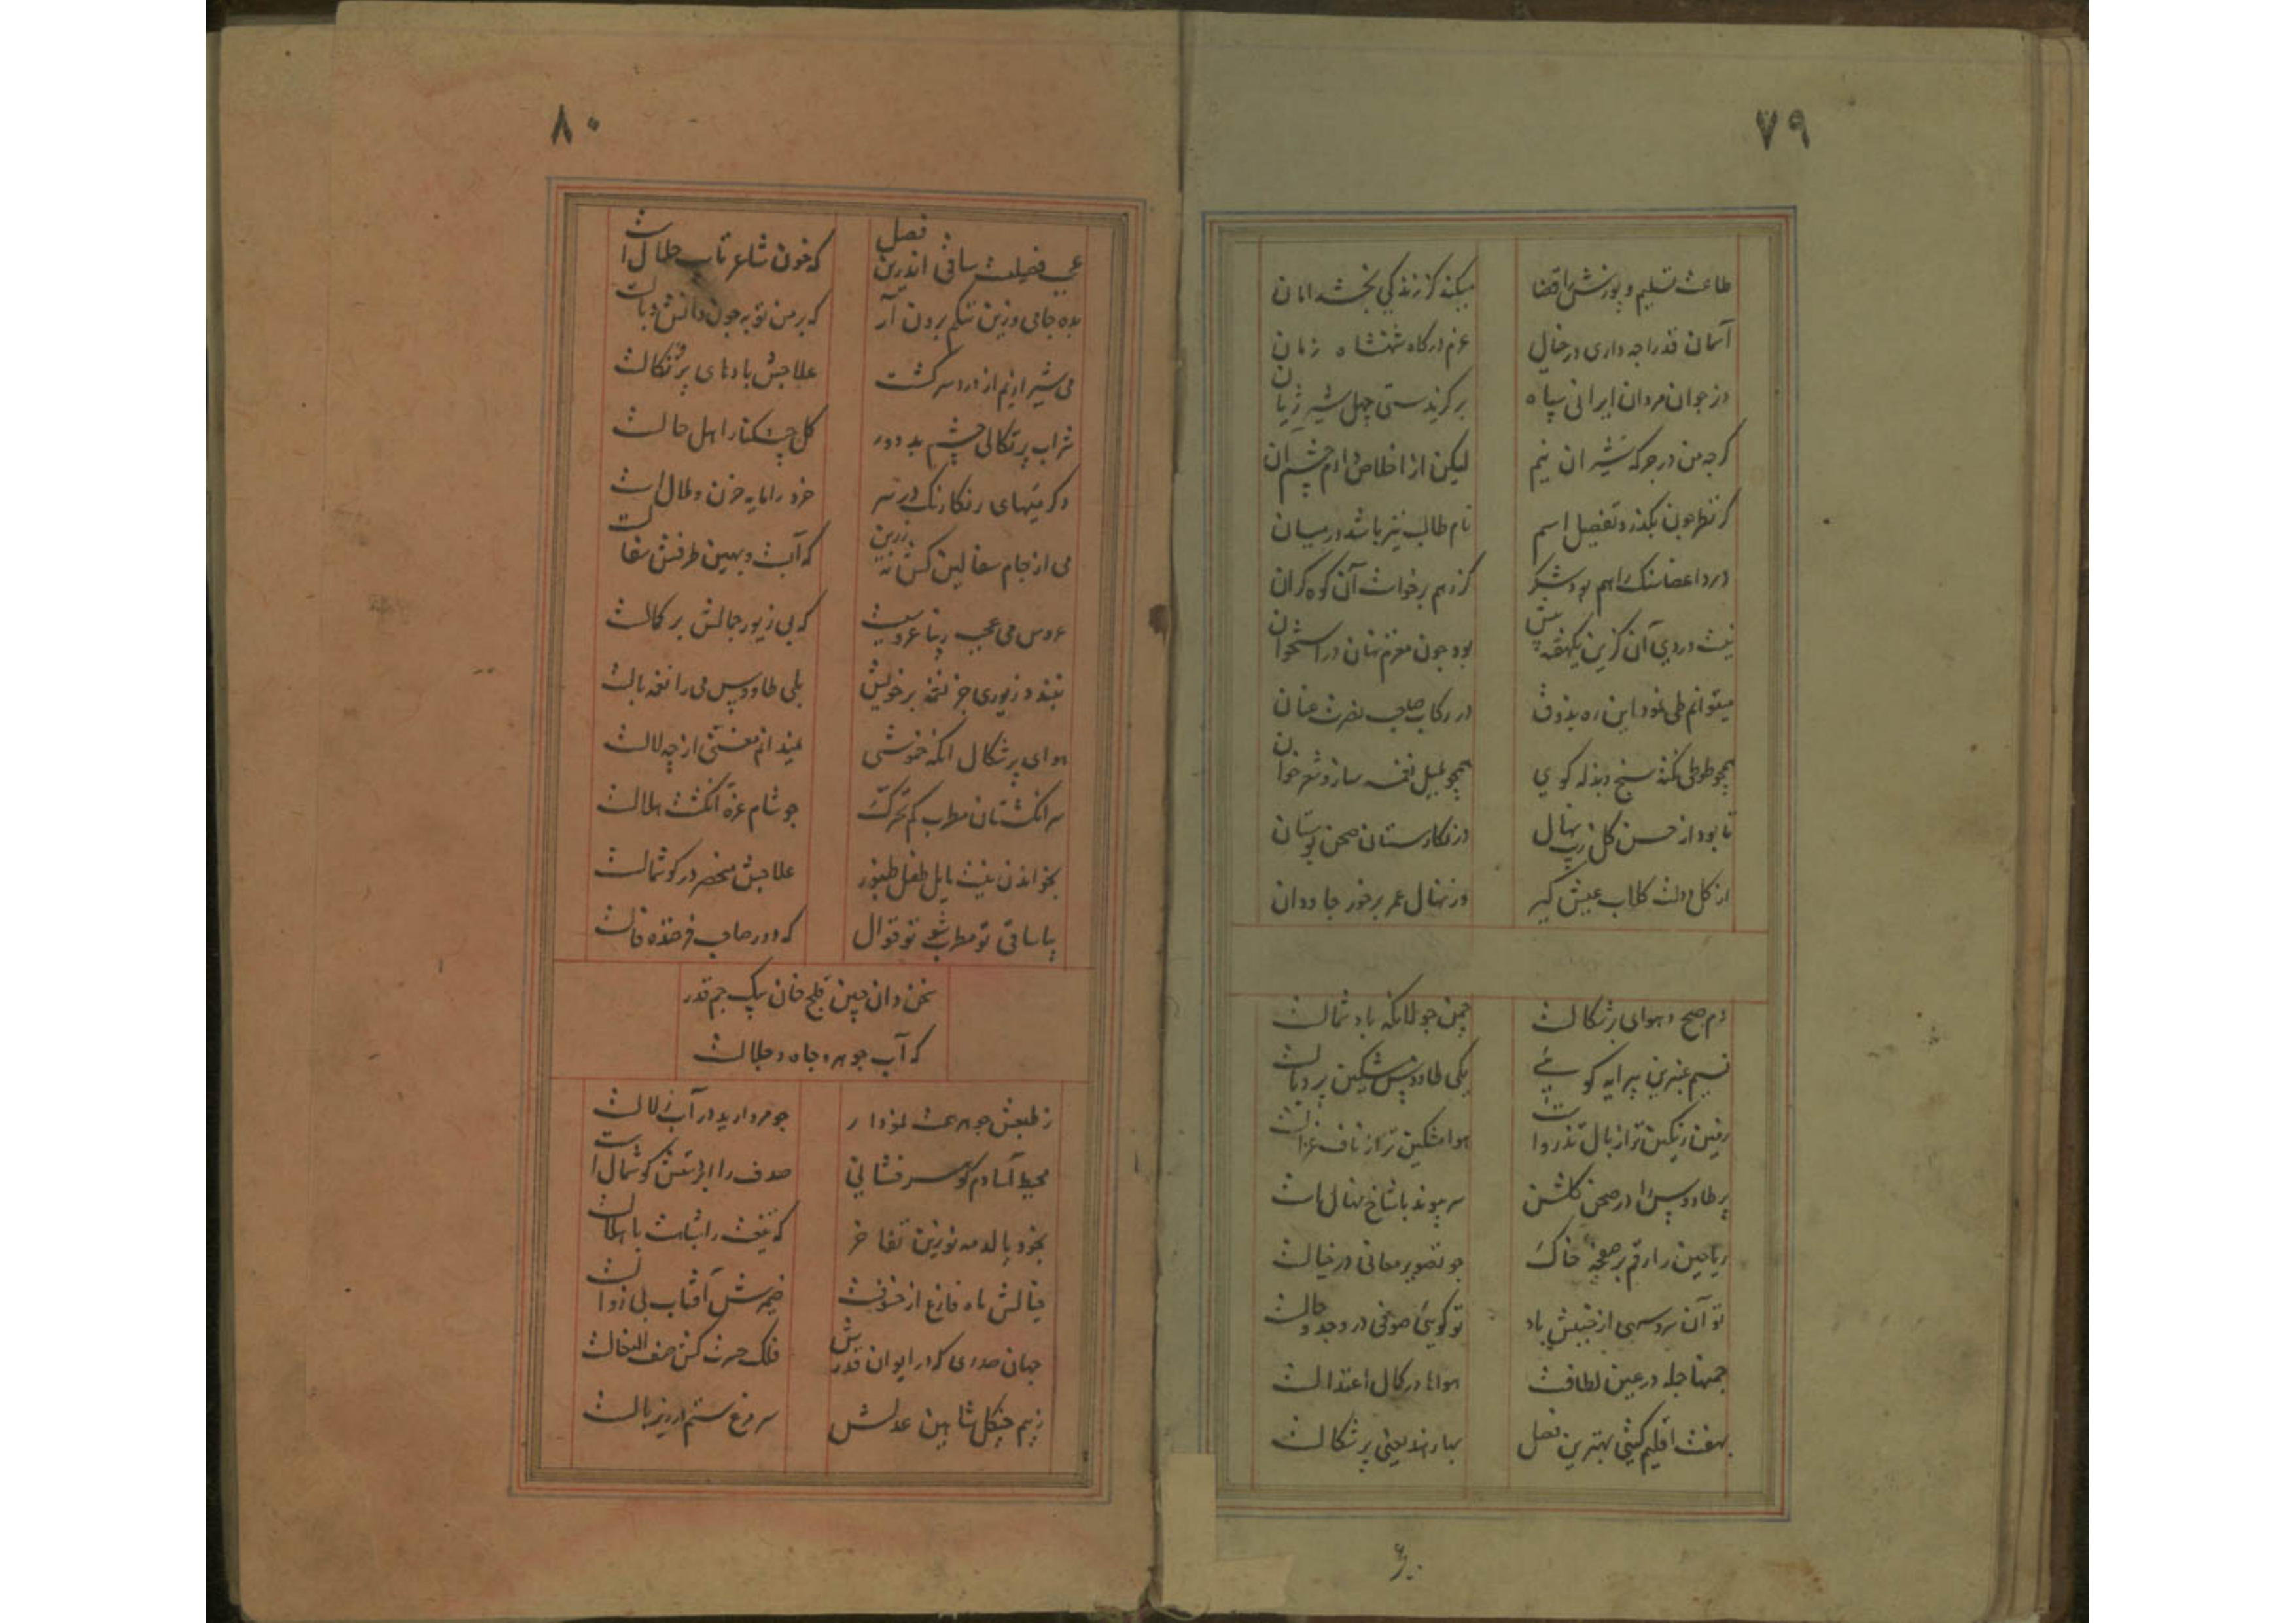 ۷۹
طاعت تسلیم و پوزش را قضا میکند کز زندگی بخشد امان
آسمان قدرا چه داری در خیال عزم درکاه شهنشاه زمان
وز جوان مردان ایرانی سپاه برگزیدستی چهل شیر ژیان
کرچه من در جرکه شیران نیم لیکن از اخلاص دارم چشم آن
کز نظر چون بگذرد تفصیل اسم نام طالب نیز باشد در میان
درد اعضا سنک راهم بود شکر کز رهم برخواست آن کوه کران
نیست دردی آن کزین یکهفته پیش بود چون مغزم نهان در استخوان
میتوانم طی نمود این ره بذوق در رکاب صاحب نصرت عنان
همچو طوطی نکته سنج و بذله کوی همچو بلبل نغمه ساز و شعر خوان
تا بود از حسن کل زیب نهال در نکارستان صحن بوستان
از کل دولت کلاب عیش کیر وز نهال عمر برخور جاودان
دم صبح و هوای برشکالست چمن جولانکه باد شمالست
نسیم عنبرین پیرایه کوئی یکی طاووس مشکین پر و بالست
زمین رنکین تر از بال تذروا ست هوا مشکین تر از ناف غزالست
پر طاووس را در صحن کلشن سر پیوند با شاخ نهال است
ریاحین را رقم بر صفحه خاک چو تصویر معانی در خیالست
تو آن سرو سهی از جنبش باد تو کوئی صوفی در وجد و حالست
چمنها جمله در عین لطافت هواها در کمال اعتدالست
بهفت اقلیم کیتی بهترین فصل بهار هند یعنی برشکالست
۸۰
عجب فصلیست ساقی اندرین فصل که خون شاعر تایب حلال است
بده جامی و زین ننکم برون آر که بر من توبه چون دانش وبالست
می شیرازیم از دور سرکشت علاجش بادهای پرتکالست
شراب پرتکالی چشم بد دور کل چشم را اهل حالست
دکر میهای رنکارنک در سر خرد را مایه حزن و ملال است
می از جام سفالین کش نه زرین که آبست و بهین ظرفش سفالست
عروس می عجب زیبا عروسیست که بی زیور جمالش بر کمالست
نبندد زیوری جز نغمه بر خویش بلی طاووس می را نغمه بالست
هوای برشکال آنکه خموشی نمیدانم مغنی از چه لالست
سر انکشتان مطرب کم تحرک چو شام غره انکشت هلالست
بخواندن نیست مایل طفل طنبور علاجش منحصر در کوشمالست
بیا ساقی تو مطرب شو تو قوال که دور صاحب فرخنده فالست
سخن دان چین قلیج خان پیک جم قدر
که آب جوهر و جاه و جلالست
ز طبعش جوهر همت نمودار چو مروارید در آب زلالست
محیط آسا دم کوهر فشانی صدف را ابر دستش کوشمال است
بخود بالد مه نو زین تفاخر که تیغت را شباهت با هلالست
خیالش ماه فارغ از خسوفست ضمیرش آفتاب بی زوالست
جهان صدری که در ایوان قدرش فلک حسرت کش صف النعالست
ز بیم چنکل شاهین عدلش سر مرغ ستم در زیر بالست